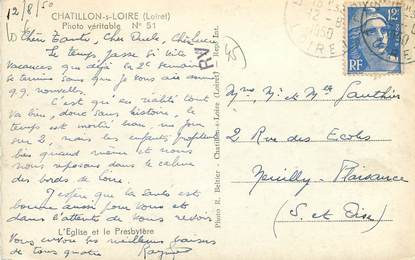 12/8/50
CHATILLON-s-LOIRE (Loiret)
Photo véritable N° 51
Chère Tante, Cher Oncle,
Le temps passe si vite
vacances que déjà la 2e semaine
se termine sans que je vous ai donné
nouvelles.
C'est qu'en réalité tout
va bien, donc sans histoire, le
temps est mortié beau, un jour
sur 2, mais les enfants profitent
bien quand même et nous
nous reposons dans le calme
des bords de Loire.
J'espère que la santé est
bonne aussi pour vous et
dans l'attente de vous revoir
L'Eglise et le Presbytère
vous envoie les meilleurs baisers
de tous quatre
RV
Photo R. Beltier - Chatillon-s-Loire (Loiret) Rept Int
45
12 F
RF
Mme, Mr et Mlle Gauthier
2 Rue des Ecoles
Neuilly-Plaisance
(S. et Oise)